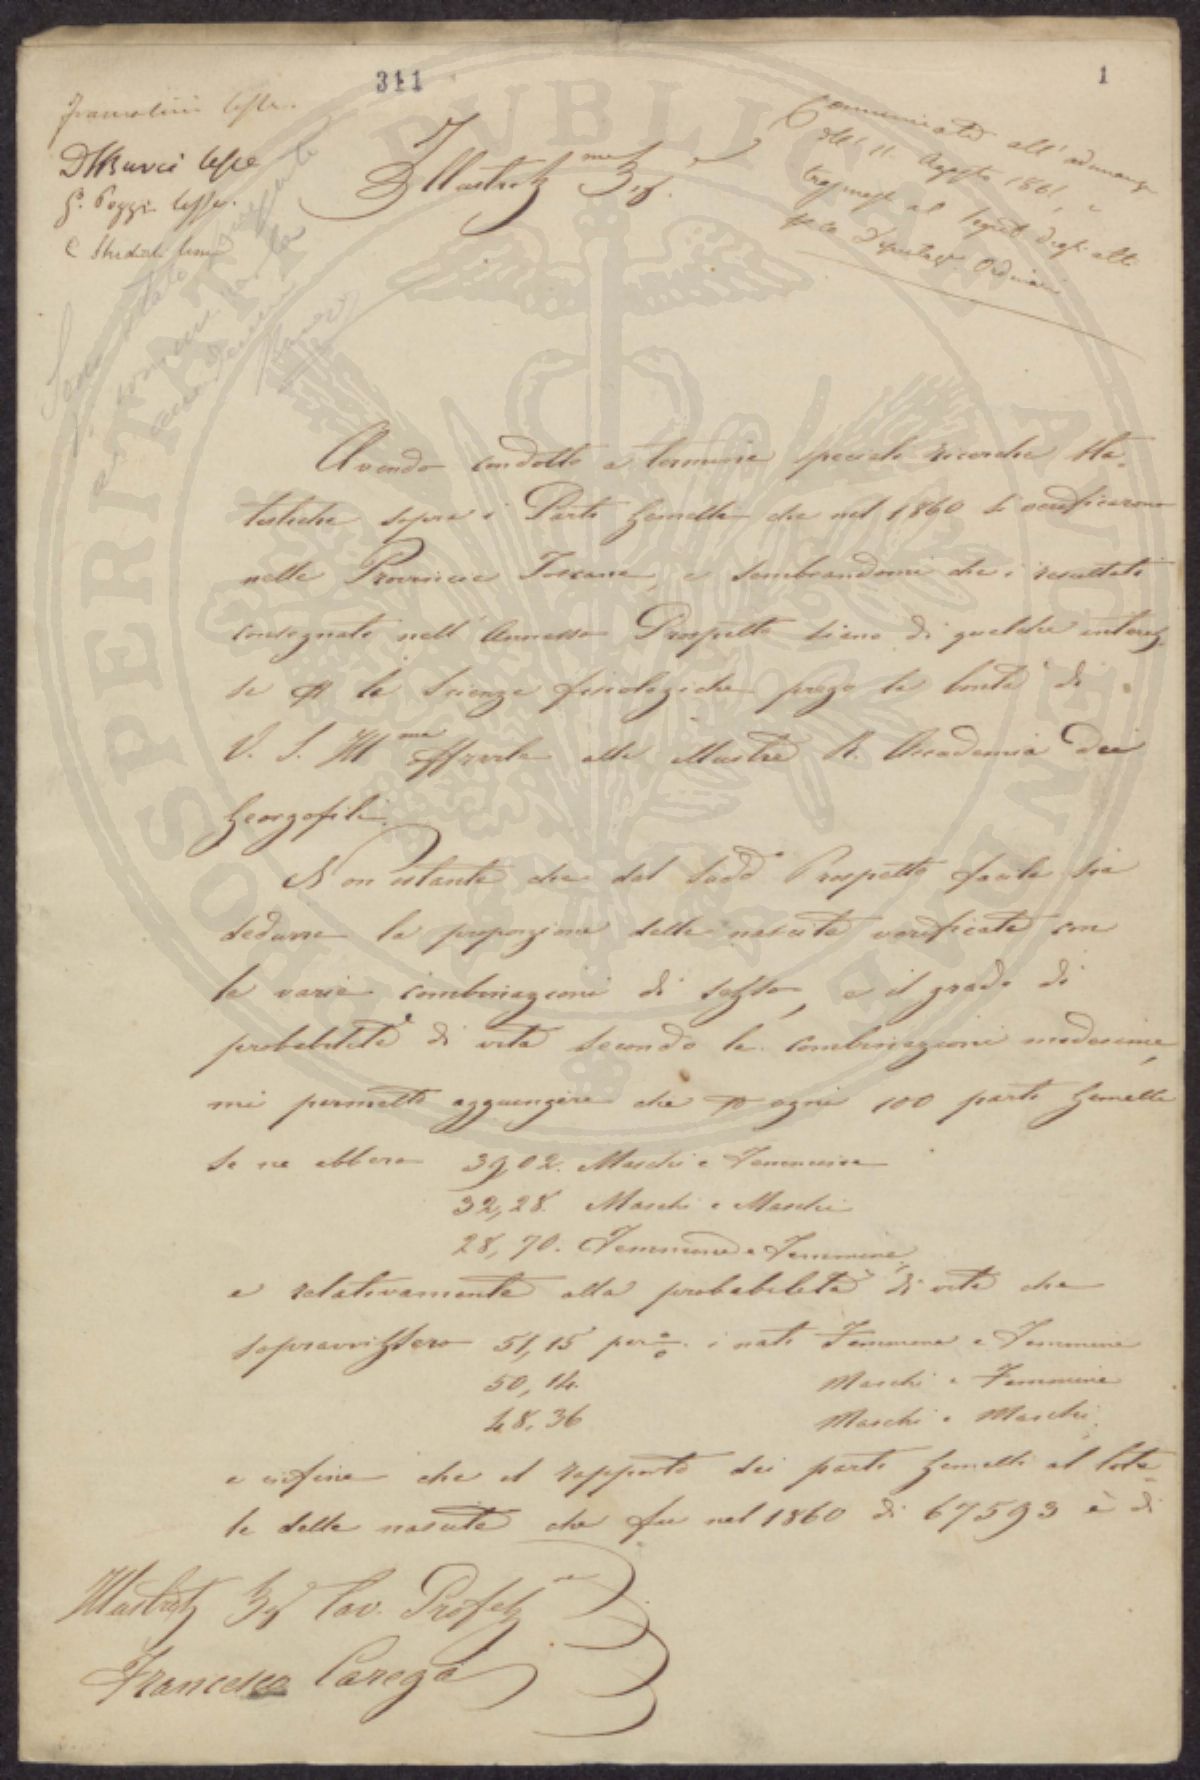 311
1
Franceschi lesse.
D. Burci lesse
G. Poggi lesse.
C Studiati
Sono stato
Comunicato all' adunanza
dell' 11. Agosto 1861, e
trasmesse al Segret. degli atti
Ordinarie
Illustre. mo Sig. e
Avendo condotto a termine speciali ricerche sta-
tistiche sopra i Parti Gemelli che nel 1860 si verificarono
nelle Provincie Toscane, e sembrandomi che i resultati
consegnati nell' Annesso Prospetto siano di qualche interes
se p le Scienze fisiologiche prego la bontà di
V. S. Ill me offrirle alla illustre R. Accademia Dei
Georgofili.
Non ostante che dal Sudd.o Prospetto facile sia
dedurre la proporzione delle nascite verificate con
le varie combinazioni di sesso, e il grado di
probabilità di vita secondo le combinazioni medesime,
mi permetto aggiungere che p ogni 100 parti Gemelli
se ne ebbero 39,02. Maschi e Femmine
32,28. Maschi e Maschi
28,70. Femmine e Femmine,
e relativamente alla probabilità di vita che
sopravvissero 51,15 per %. i nati Femmine e Femmine
50,14. Maschi e Femmine
48,36 Maschi e Maschi.
e infine che il rapporto dei parti Gemelli al tota-
le delle nascite che fu nel 1860 di 67593 è di
Illustre Sig Cav. Profess re
Francesco Carega
PROSPERITATI PUBLICAE AUGENDAE